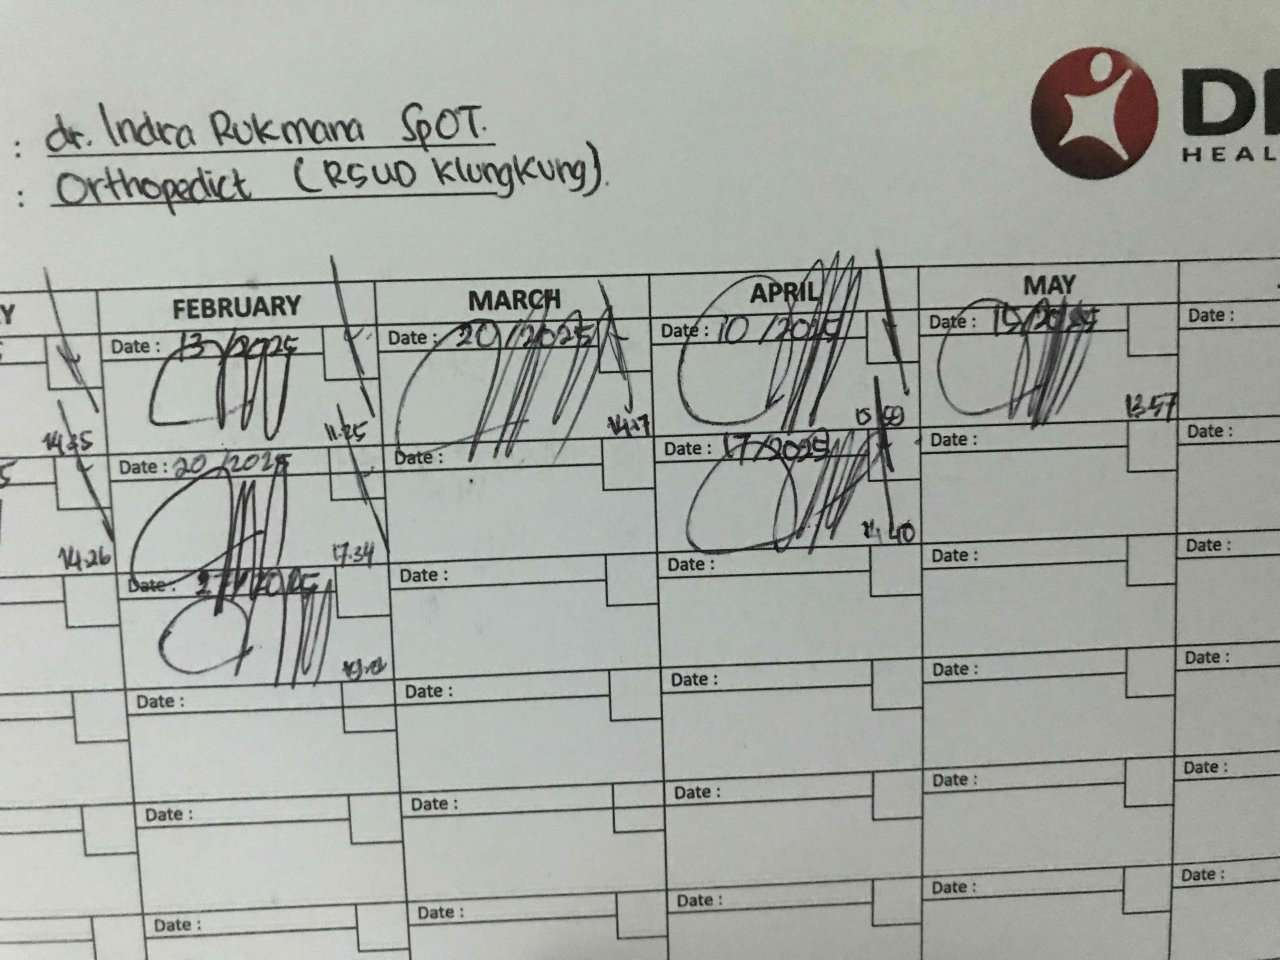 : dr. Indra Rukmana SpOT.
: Orthopedict (RSUD Klungkung).
DI
HEAL
Y FEBRUARY MARCH APRIL MAY
Date : 13/2025 Date : 20/2025 Date : 10/2025 Date : 15/2025 Date :
11.25 13.57
5 Date : 20/2025 Date : Date : 17/2025 Date : Date :
14.26 17.34 40
Date : 27/2025 Date : Date : Date : Date :
Date : Date : Date : Date : Date :
Date : Date : Date : Date : Date :
Date : Date : Date : Date : Date :